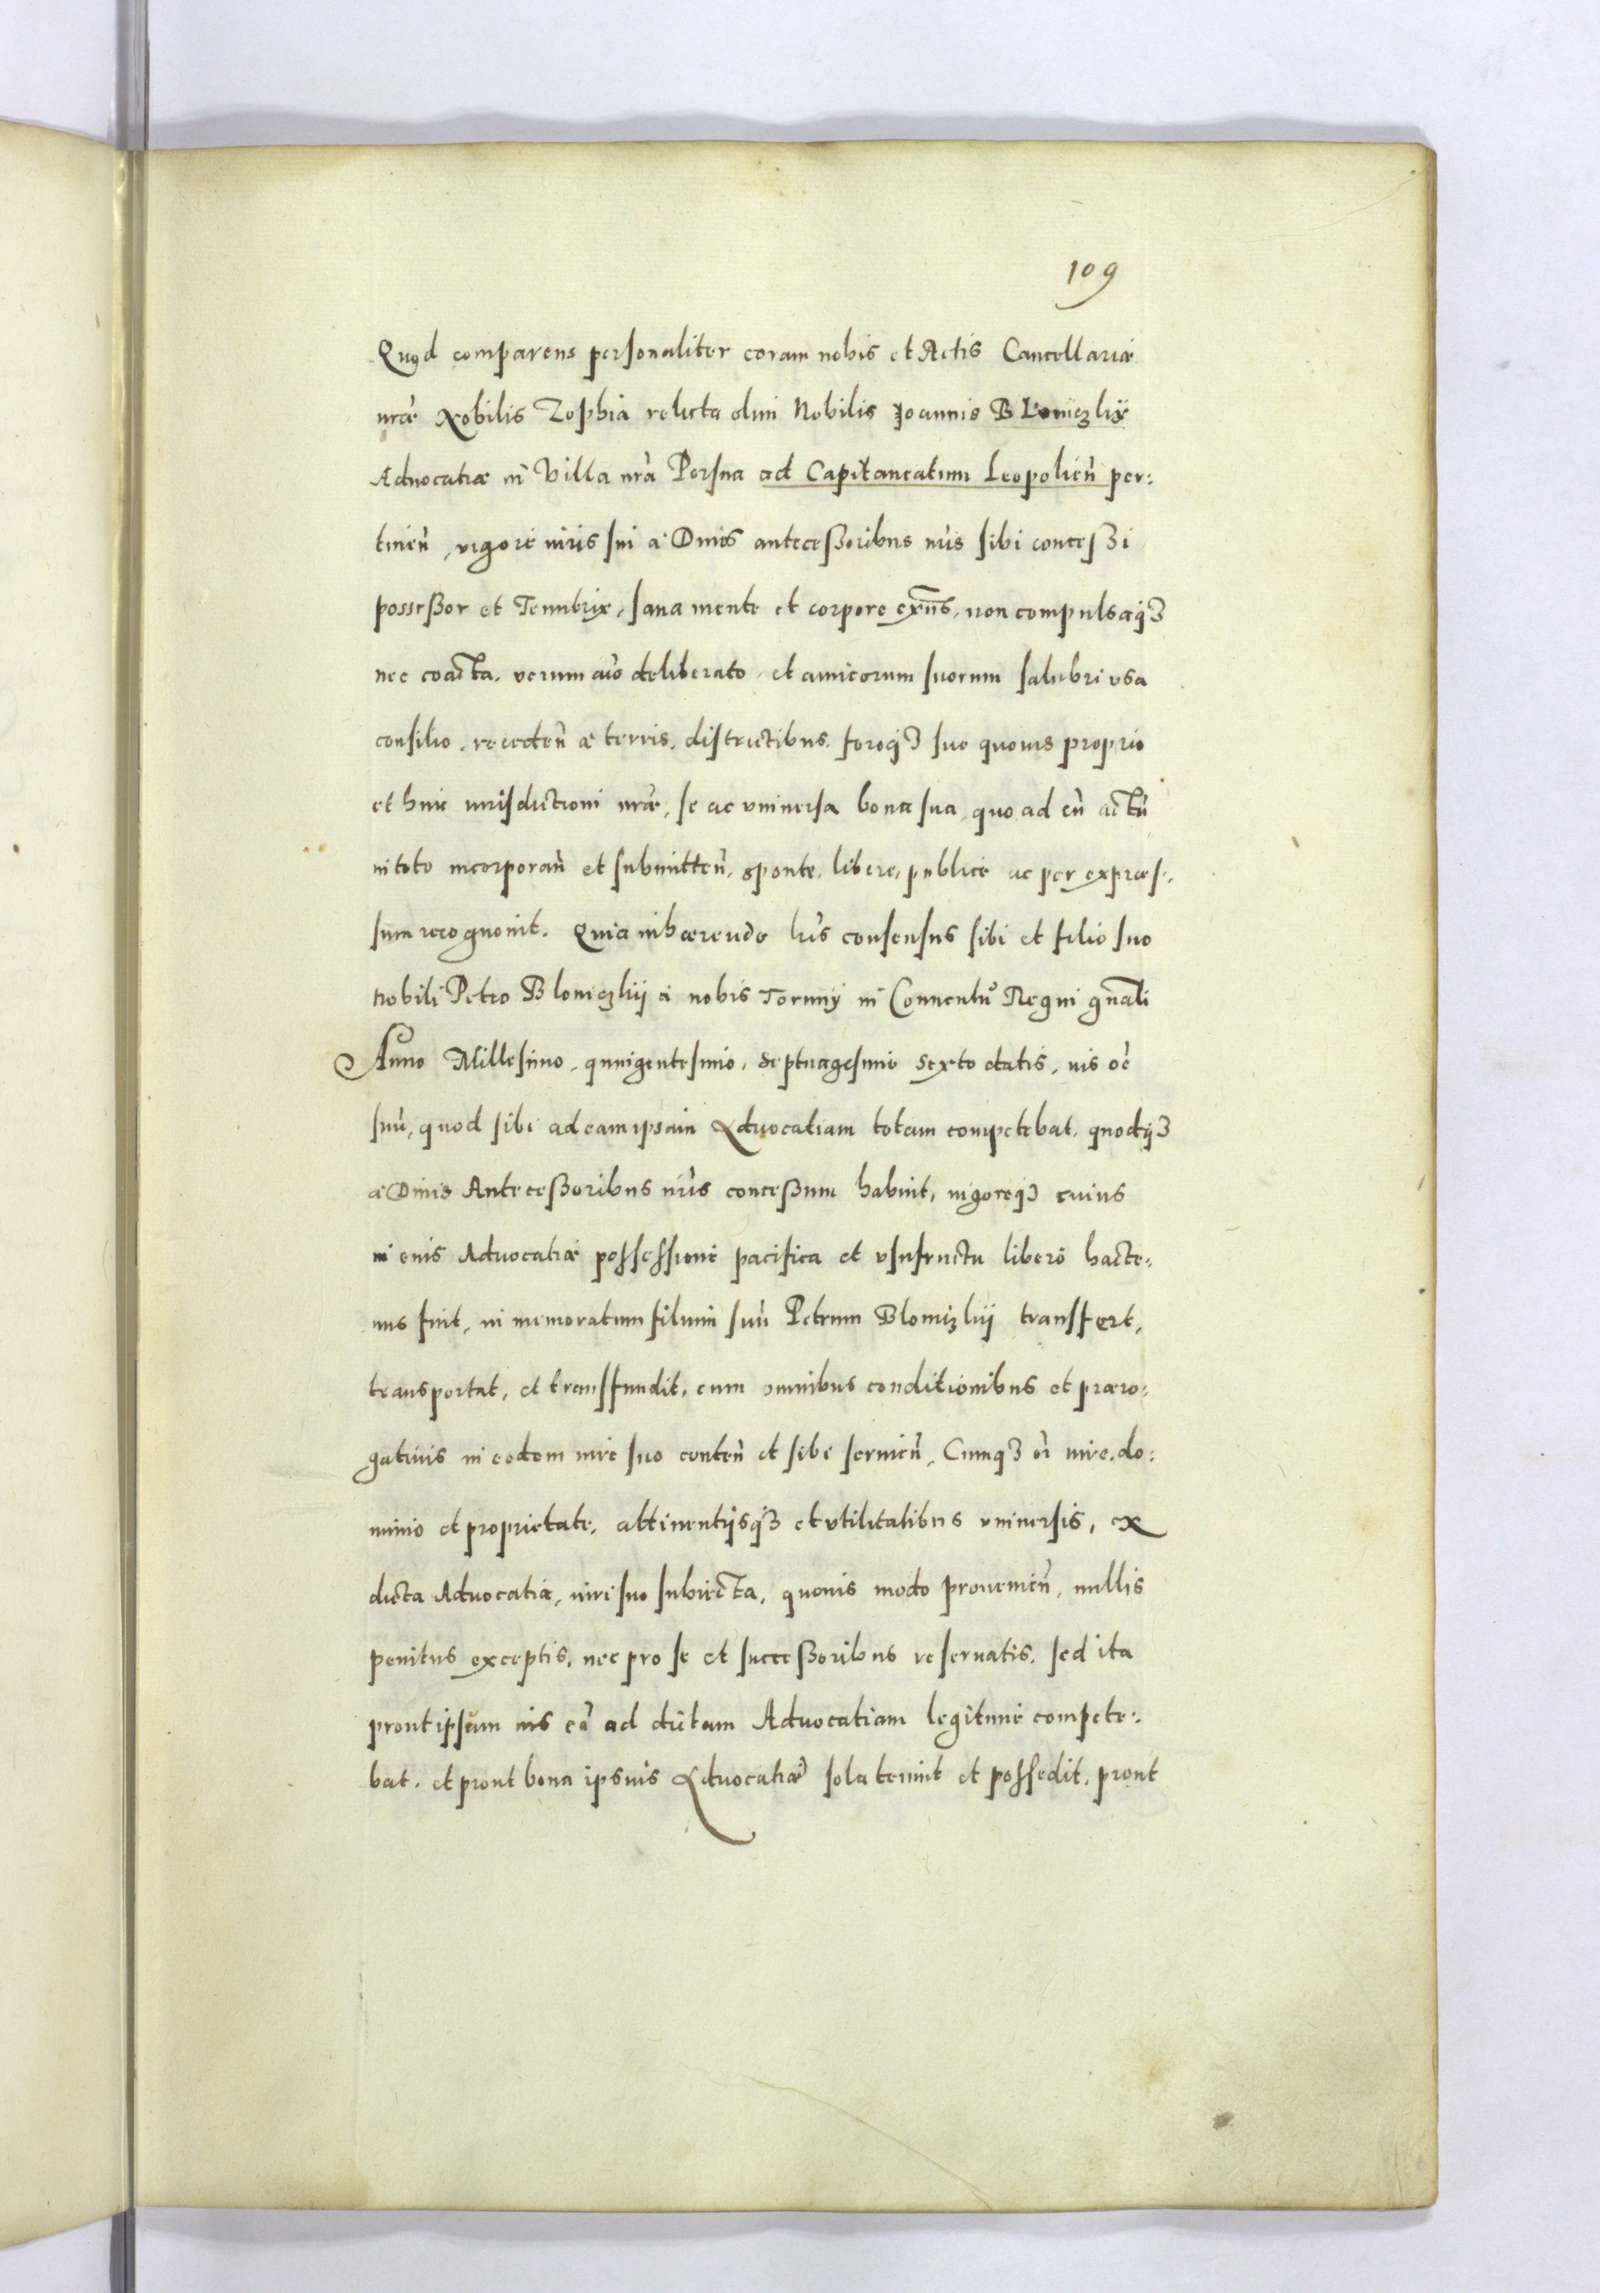 109
Quod comparens personaliter coram nobis et Actis Cancellariæ
nr̃æ Nobilis Zophia relicta olim Nobilis Joannis Bloniczkij
Aduocatiæ in Villa nr̃a Persna ad Capitaneatum Leopolien̄ per:
tinen̄, vigore iuris sui a Diuis antecessoribus nr̃is sibi concessi
possessor et Tenutrix, sana mente et corpore exn̄s, non compulsaq3
nec coacta, verum aīo deliberato, et amicorum suorum salubri vsa
consilio, receden̄ a terris, districtibus, foroq3 suo quouis proprio
et huic iurisdictioni nr̃æ, se ac vniuersa bona sua, quo ad eū actū
in toto incorporan̄ et submitten̄, sponte, libere, publice ac per expres:
sum recognouit. Quia inhærendo lr̃is consensus sibi et filio suo
Nobili Petro Bloniczkij a nobis Torunij in Conuentu Regni gn̄ali
Anno Millesimo, quingentesimo, septuagesimo sexto datis, ius oē
suū, quod sibi ad eam ipsam Aduocatiam totam competebat, quodq3
a Diuis Antecessoribus nr̃is concessum habuit, vigoreq3 cuius
in eius Aduocatiæ possessione pacifica et vsufructu libero hacte:
nus fuit, in memoratum filium suū Petrum Blonizkij transfert,
transportat, et transfundit, cum omnibus conditionibus et præro:
gatiuis in eodem iure suo conten̄ et sibi seruien̄, Cumq3 oī iure, do:
minio et proprietate, attinentijsq3 et vtilitatibus vniuersis, ex
dicta Aduocatia, iure suo subiecta, quouis modo prouenien̄, nullis
penitus exceptis, nec pro se et successoribus reseruatis, sed ita
prout ipsum ius eā ad dictam Aduocatiam legitime compete:
bat, et prout bona ipsius Aduocatiæ sola tenuit et possedit, prout